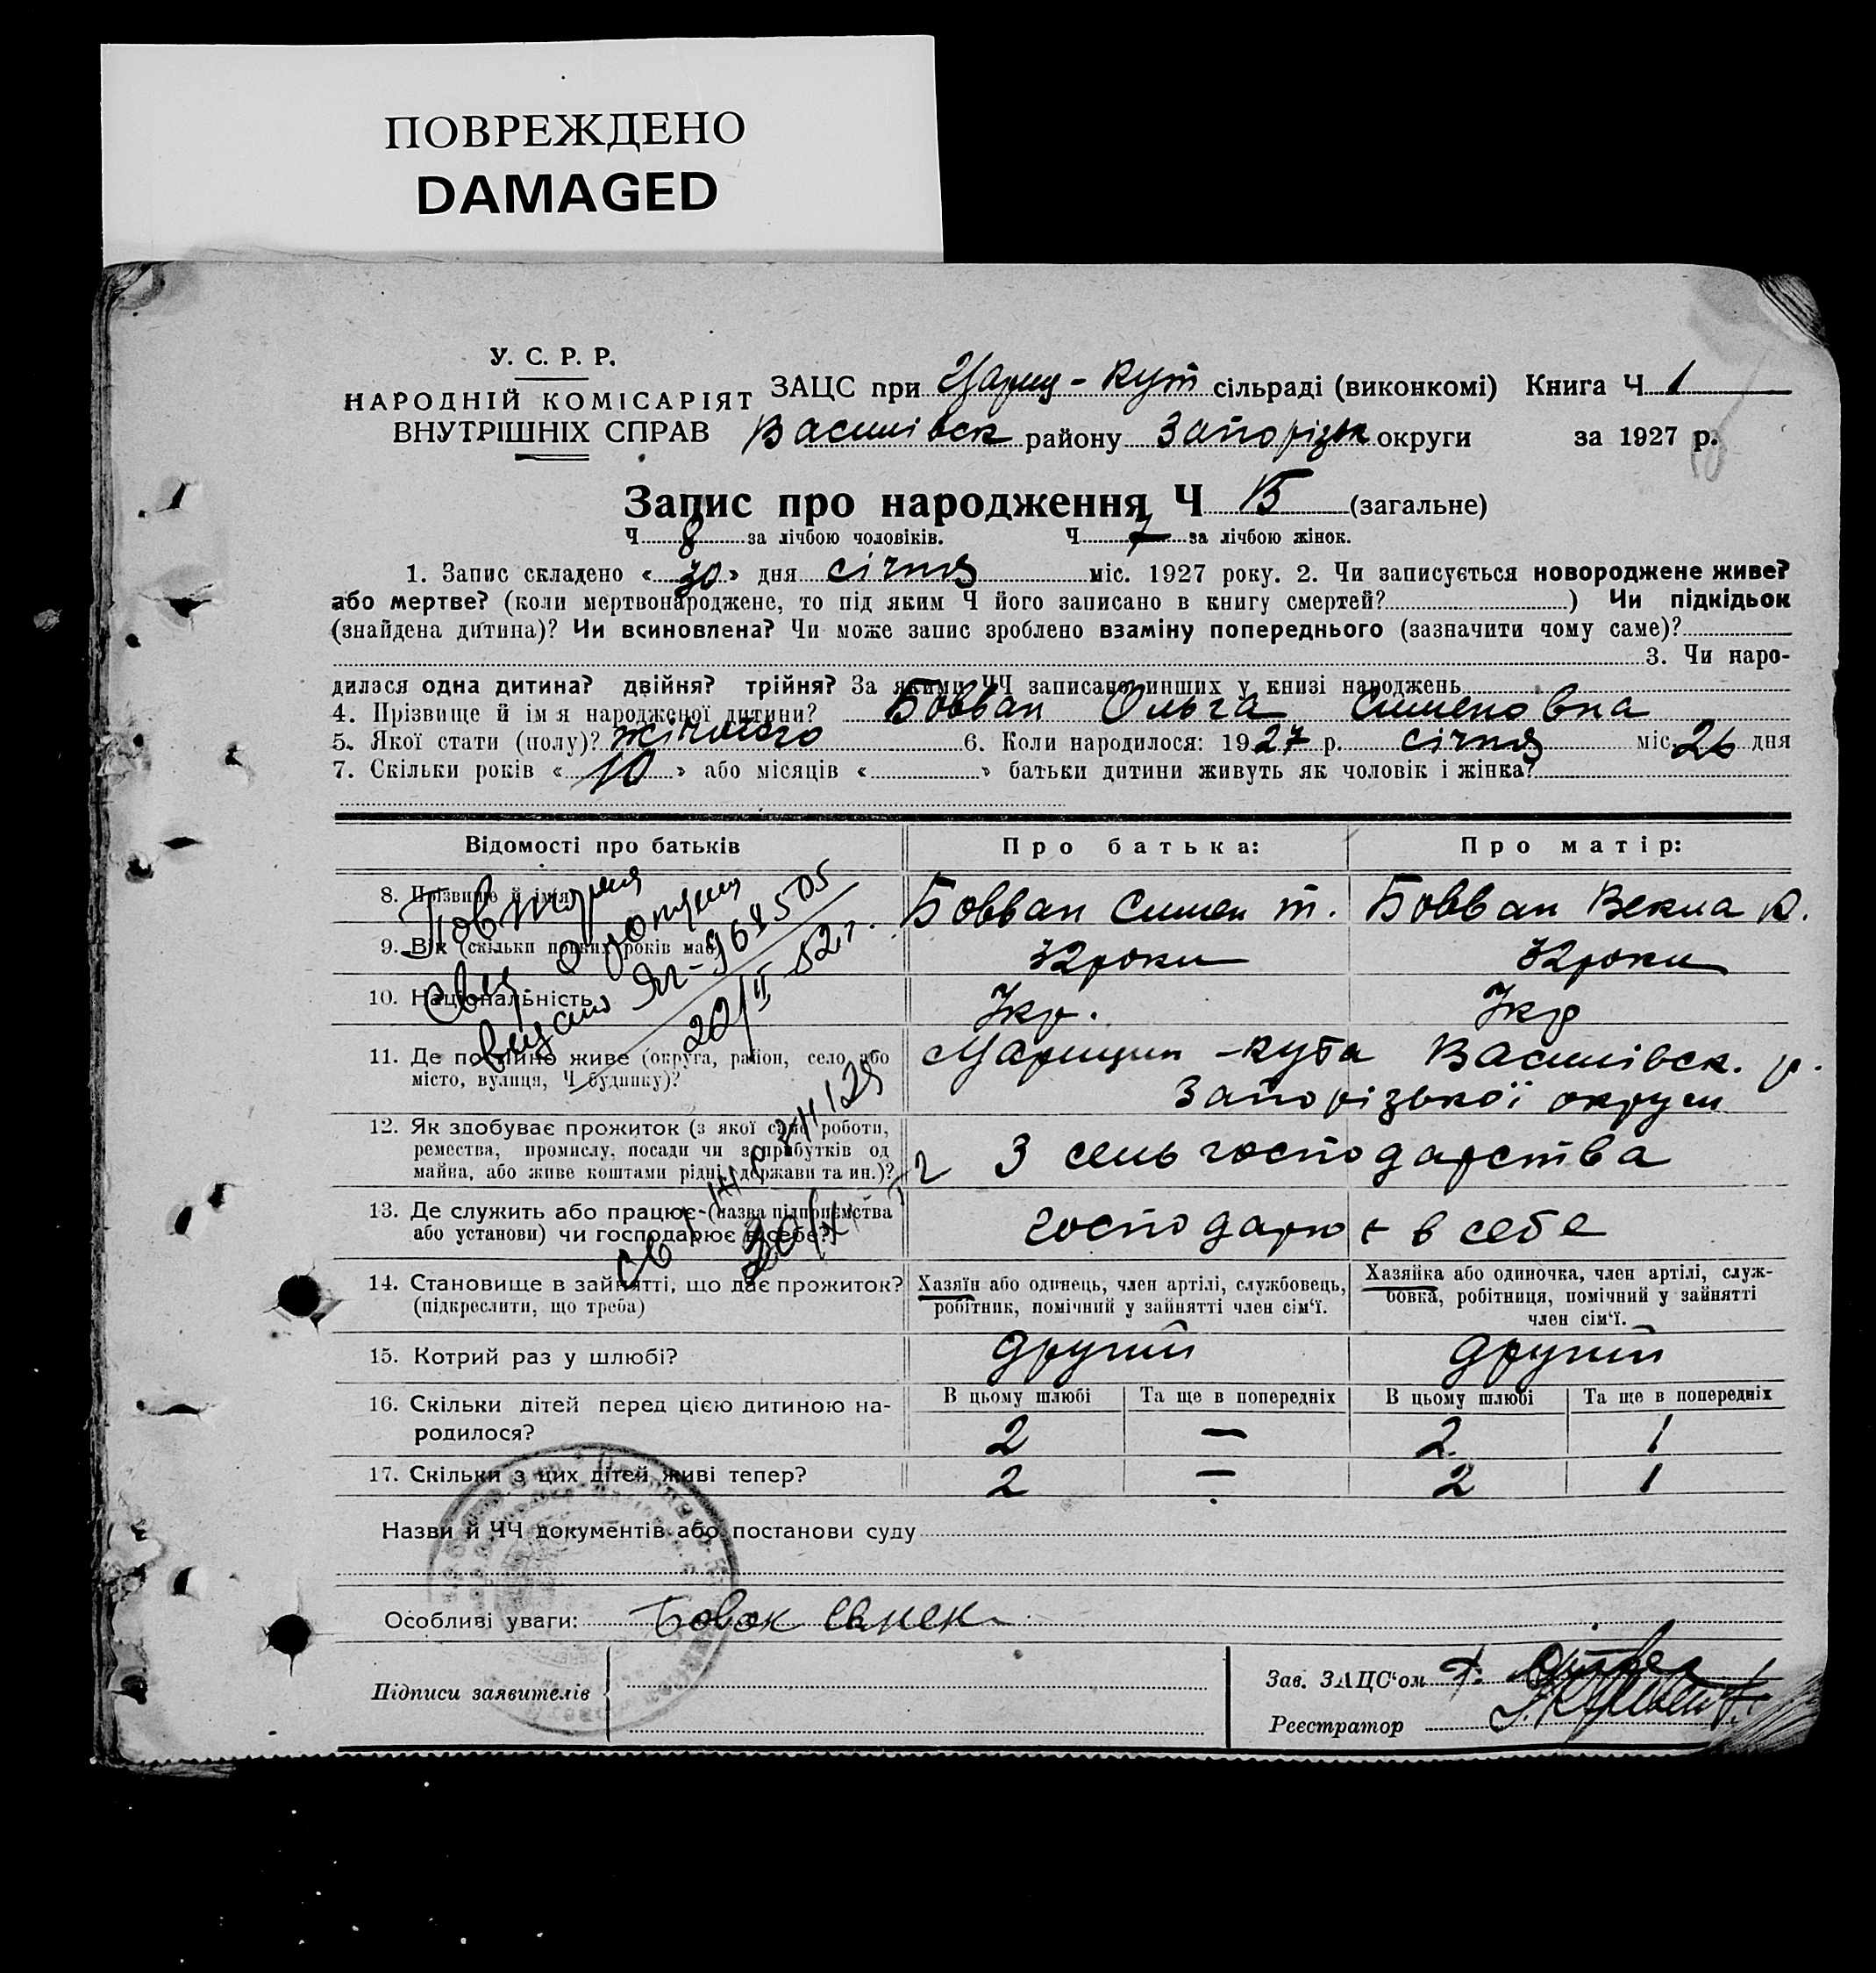 ПОВРЕЖДЕНО
DAMAGED
У. С. Р. Р.
НАРОДНІЙ КОМІСАРІЯТ
ВНУТРІШНІХ СПРАВ
ЗАЦС при Цариц-Кут сільраді (виконкомі) Книга Ч 1
Василівск району Запорізьк округи за 1927 р.
Запис про народження Ч 15 (загальне)
Ч 8 за лічбою чоловіків. Ч 7 за лічбою жінок.
1. Запис складено «30» дня січня міс. 1927 року. 2. Чи записується новороджене живе?
або мертве? (коли мертвонароджене, то під яким Ч його записано в книгу смертей? ) Чи підкідьок
(знайдена дитина)? Чи всиновлена? Чи може запис зроблено взаміну попереднього (зазначити чому саме)?
3. Чи наро-
дилася одна дитина? двійня? трійня? За якими ЧЧ записано инших у книзі народжень
4. Прізвище й ім я народженої дитини? Бовван Ольга Сименовна
5. Якої стати (полу)? жіночого 6. Коли народилося: 1927 р. січня міс. 26 дня
7. Скільки років «10» або місяців « » батьки дитини живуть як чоловік і жінка?
Відомості про батьків Про батька: Про матір:
8. Прізвище й ім'я Бовван Симен Т. Бовван Векла К.
9. Вік (скільки повних років має) 32 роки 32 роки
10. Національність Укр. Укр
11. Де постійно живе (округа, район, село або Царицин-кута Василівск. р.
місто, вулиця, Ч будинку)? Запорізької округи
12. Як здобуває прожиток (з якої саме роботи,
ремества, промислу, посади чи з прибутків од З сельгосподарства
майна, або живе коштами рідні, держави та ин.)?
13. Де служить або працює (назва підприємства
або установи) чи господарює в себе? господарює в себе
14. Становище в зайнятті, що дає прожиток?
(підкреслити, що треба)
Хазяїн або одинець, член артілі, службовець,
робітник, помічний у зайнятті член сім'ї.
Хазяйка або одиночка, член артілі, служ-
бовка, робітниця, помічний у зайнятті
член сім'ї.
15. Котрий раз у шлюбі? другий другий
16. Скільки дітей перед цією дитиною на-
родилося?
В цьому шлюбі Та ще в попередніх В цьому шлюбі Та ще в попередніх
2 — 2 1
17. Скільки з цих дітей живі тепер? 2 — 2 1
Назви й ЧЧ документів або постанови суду
Особливі уваги: Бовок
Підписи заявителів
Зав. ЗАЦС'ом
Реєстратор
Повторная
свид. о рожден
выдано
20/II 52 г.